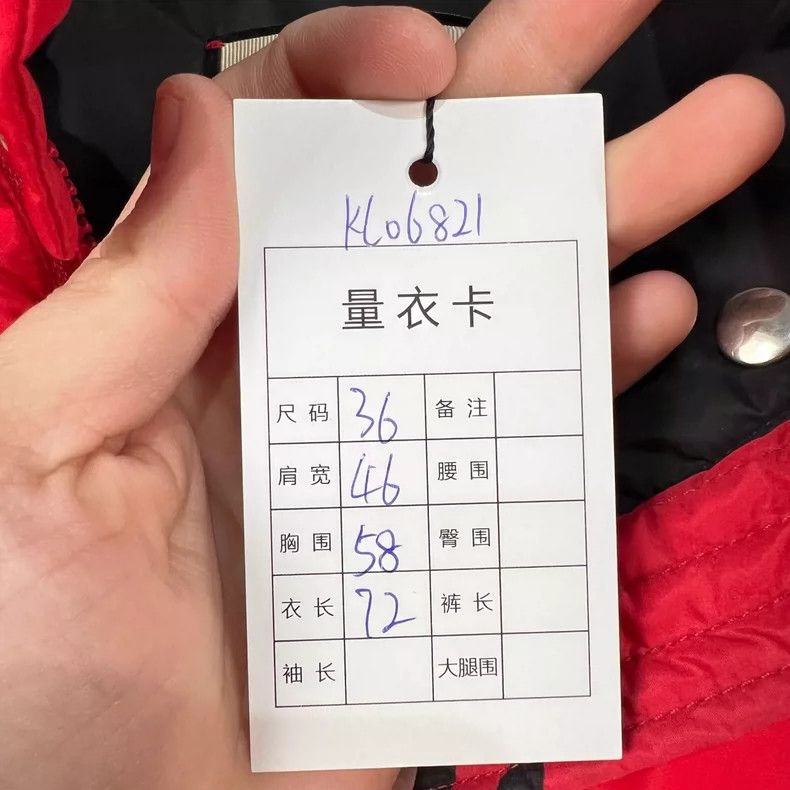 KL06821
量衣卡
尺码 36 备注
肩宽 46 腰围
胸围 58 臀围
衣长 72 裤长
袖长 大腿围